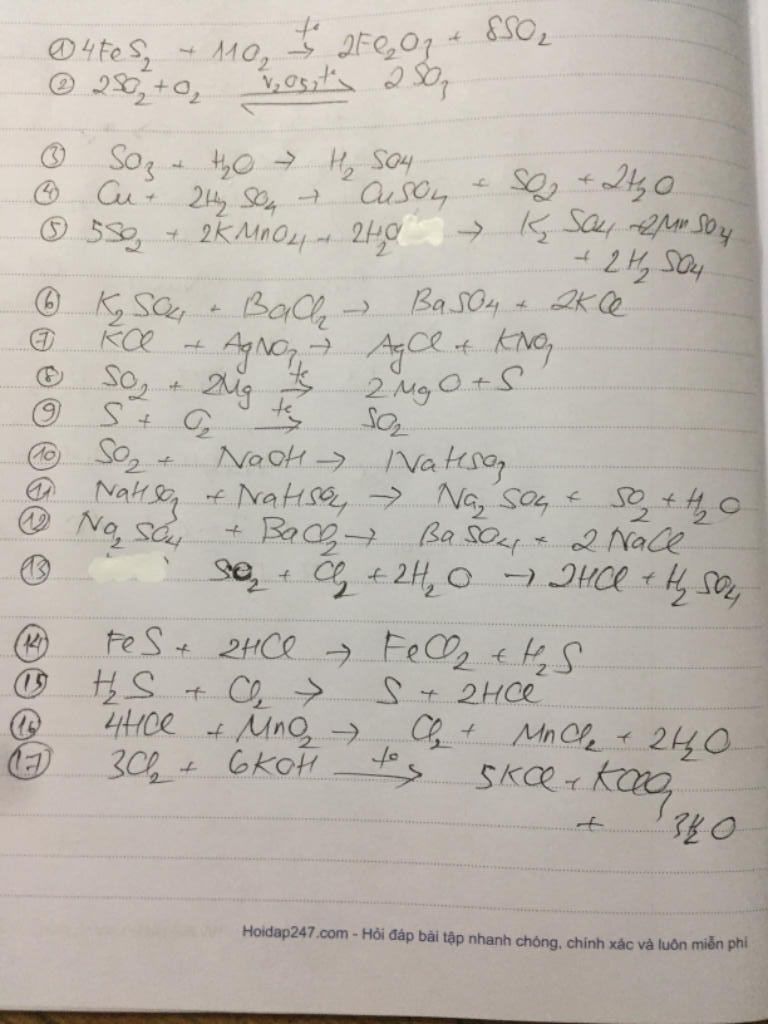 ① 4FeS₂ + 11O₂ →(t°) 2Fe₂O₃ + 8SO₂
② 2SO₂ + O₂ ⇌(V₂O₅, t°) 2SO₃
③ SO₃ + H₂O → H₂SO₄
④ Cu + 2H₂SO₄ → CuSO₄ + SO₂ + 2H₂O
⑤ 5SO₂ + 2KMnO₄ + 2H₂O → K₂SO₄ + 2MnSO₄
+ 2H₂SO₄
⑥ K₂SO₄ + BaCl₂ → BaSO₄ + 2KCl
⑦ KCl + AgNO₃ → AgCl + KNO₃
⑧ SO₂ + 2Mg →(t°) 2MgO + S
⑨ S + O₂ →(t°) SO₂
⑩ SO₂ + NaOH → NaHSO₃
⑪ NaHSO₃ + NaHSO₄ → Na₂SO₄ + SO₂ + H₂O
⑫ Na₂SO₄ + BaCl₂ → BaSO₄ + 2NaCl
⑬ SO₂ + Cl₂ + 2H₂O → 2HCl + H₂SO₄
⑭ FeS + 2HCl → FeCl₂ + H₂S
⑮ H₂S + Cl₂ → S + 2HCl
⑯ 4HCl + MnO₂ → Cl₂ + MnCl₂ + 2H₂O
⑰ 3Cl₂ + 6KOH →(t°) 5KCl + KClO₃
+ 3H₂O
Hoidap247.com - Hỏi đáp bài tập nhanh chóng, chính xác và luôn miễn phí